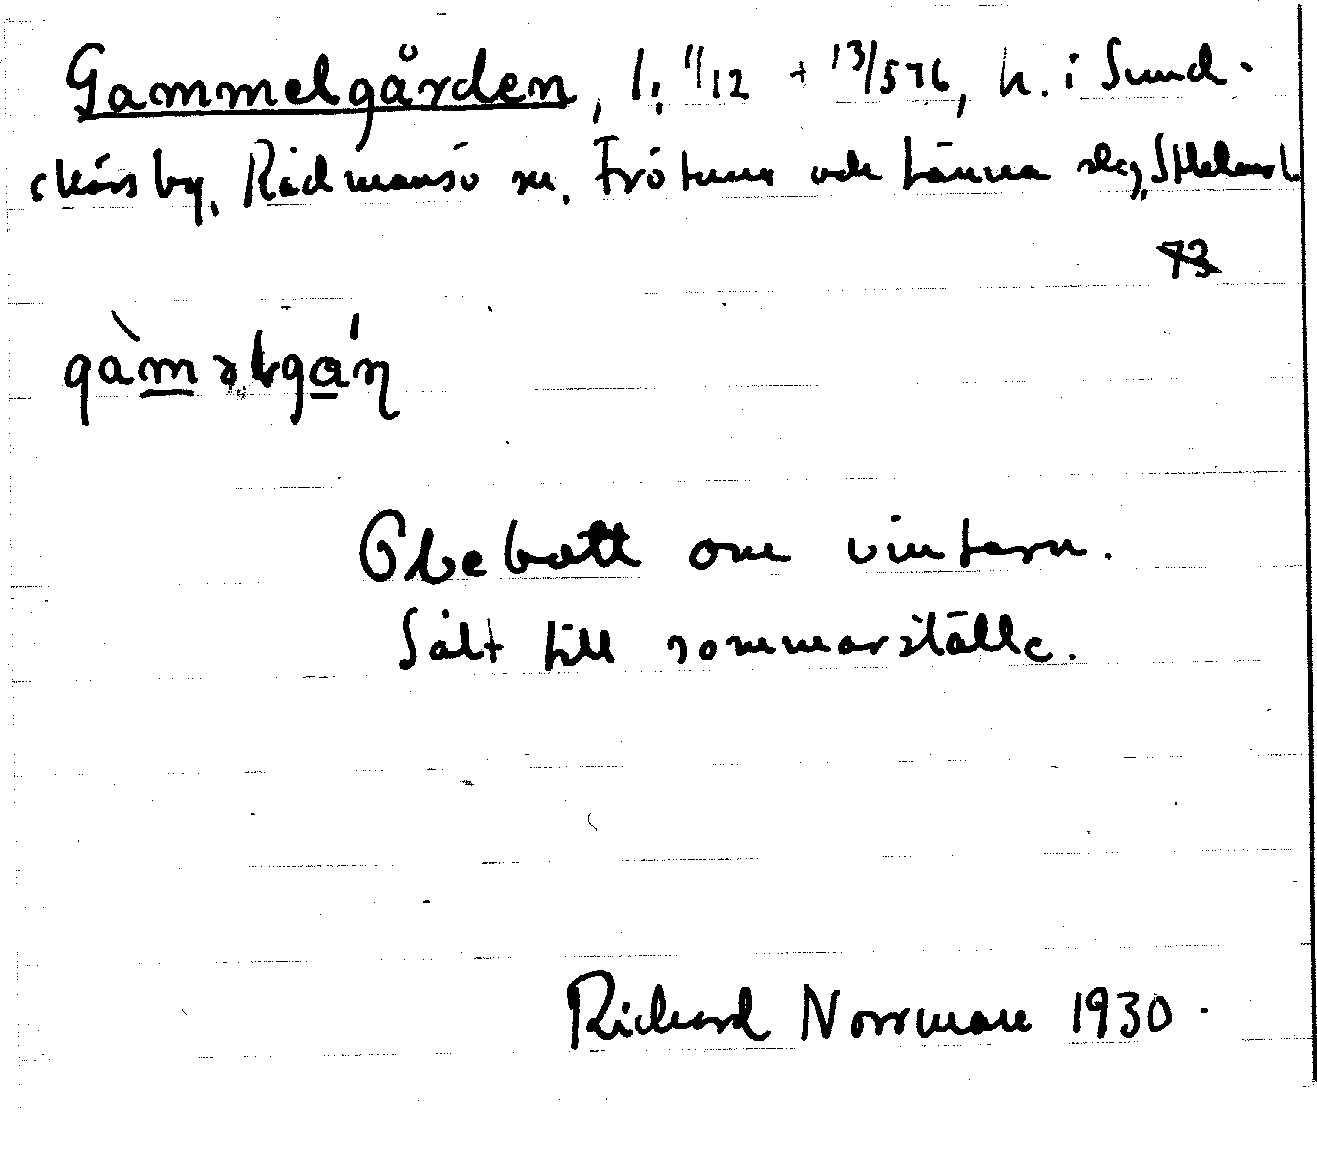 Gammelgården, 1; 1/12 + 13/576, h. i Sund-
skärs by, Rådmansö sn. Frötuna och Länna slg, Sthlms l.
73
gàmǝlgá'ɳ
Obebott om vintern.
Sålt till sommarställe.
Richard Norrman 1930.